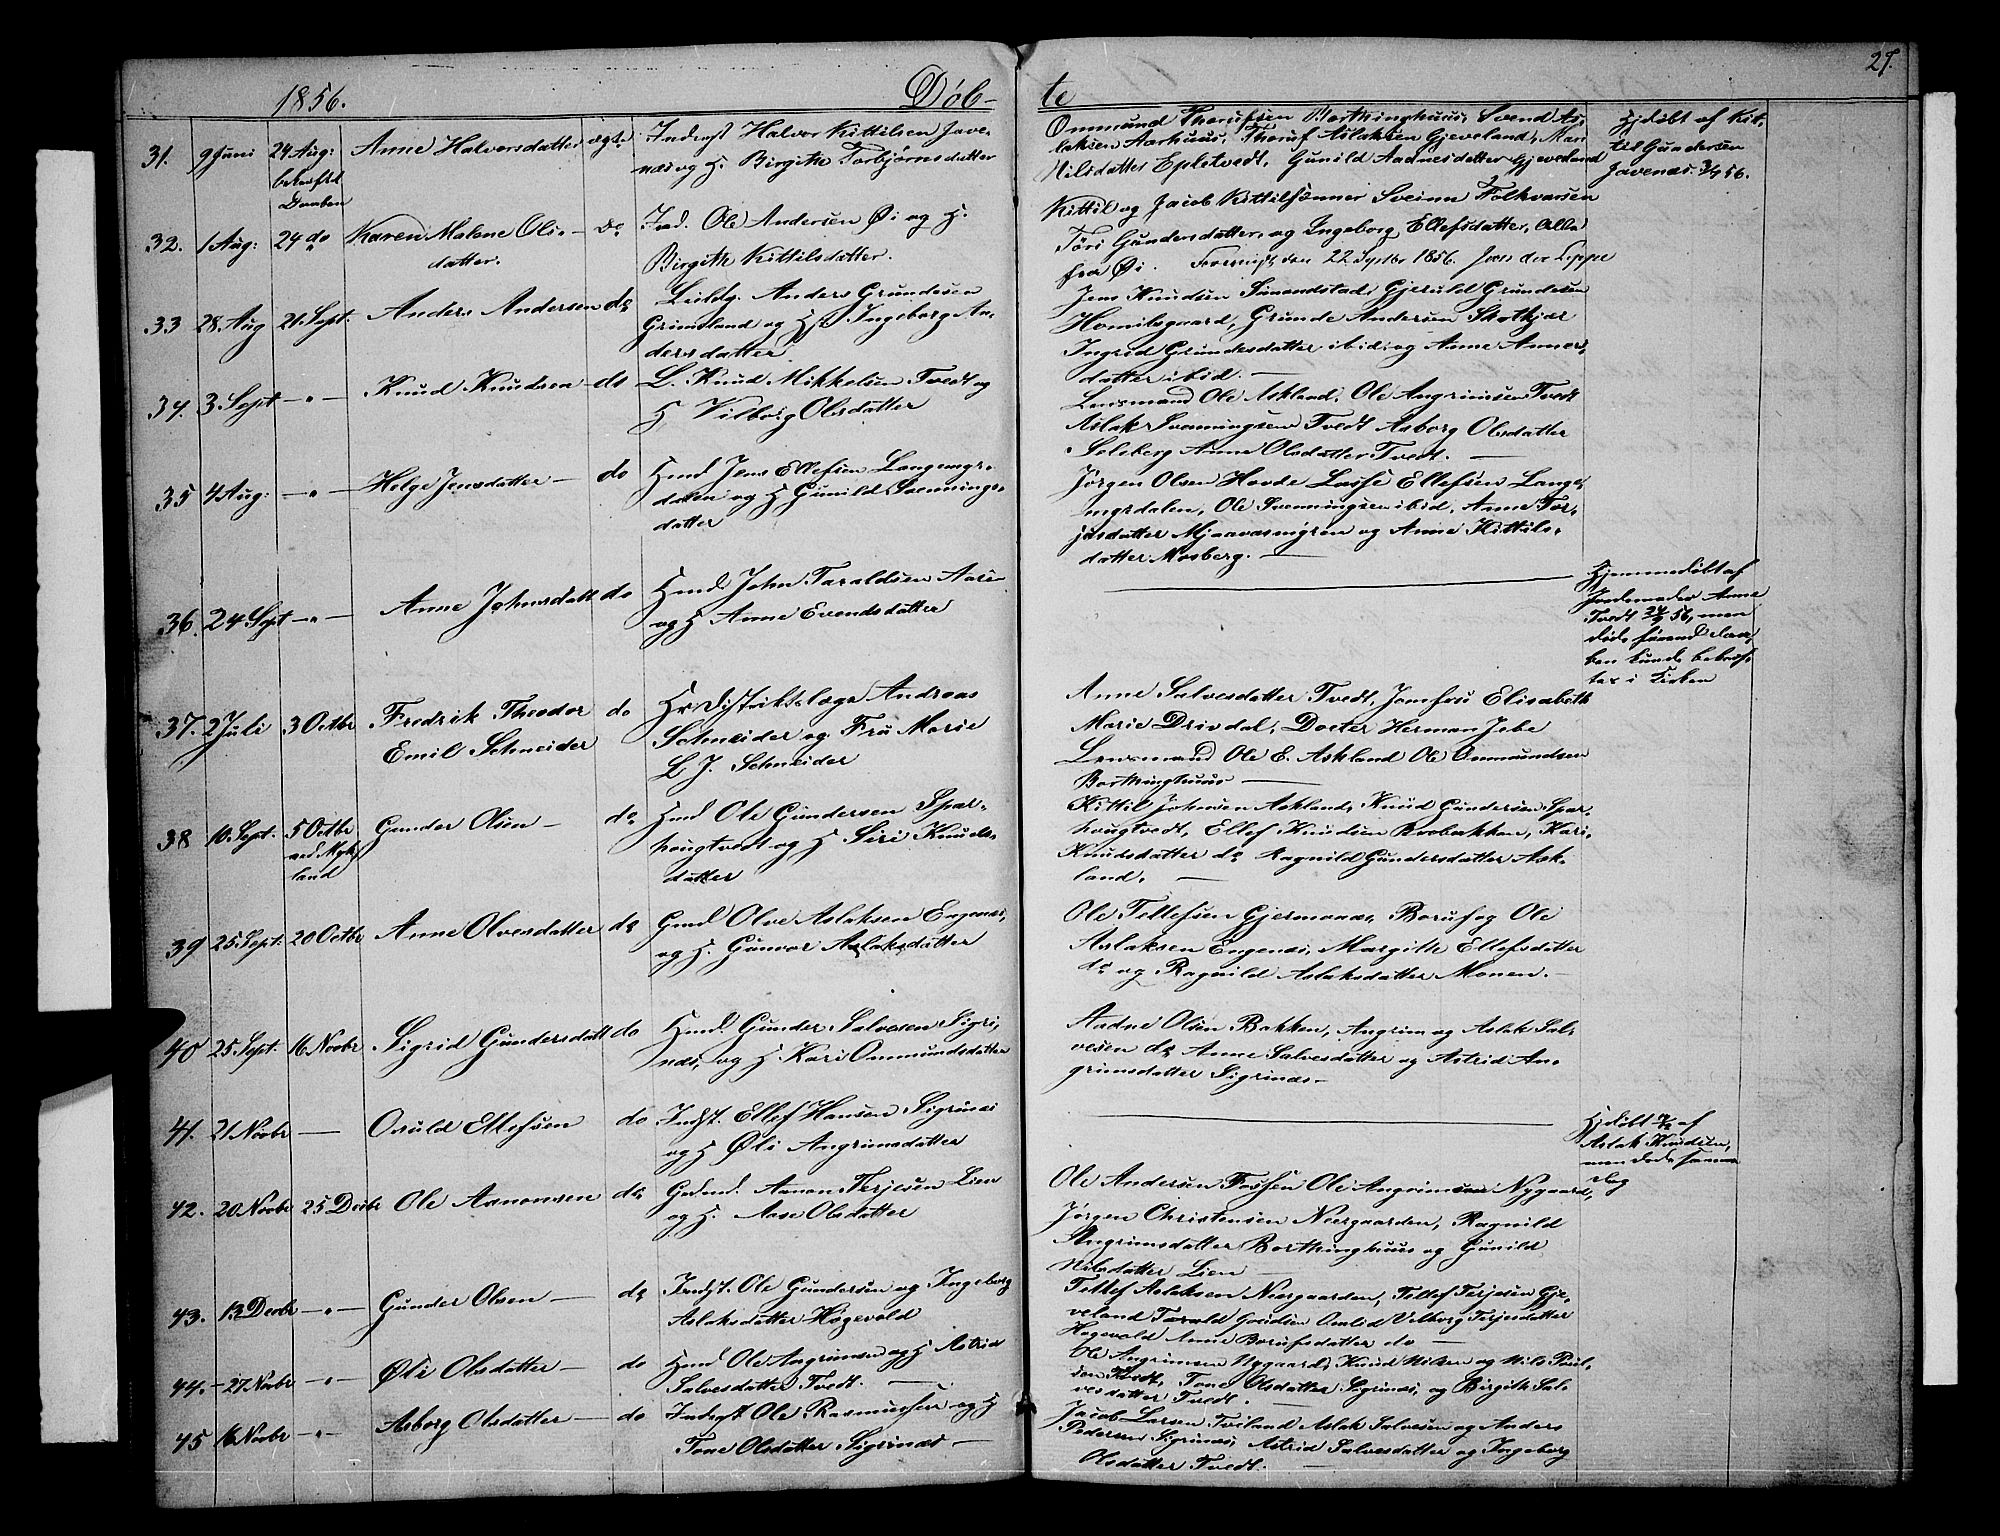 1856.
Døb-
te
27.
31. 9 Juni 24 Aug: Anne Halvorsdatter ægt. Indregst Halvor Kittilsen Jave-
bekræftet næs og H. Birgithe Torbjørnsdatter
Daaben
Ommund Thorufsen Borthinghuus, Svend As-
laksen Aarhuus, Thoruf Aslaksen Gjeveland, Mari
Nilsdatter Epletvedt, Gunild Aadnesdatter Gjeveland
Hjdøbt af Kit-
til Gundersen
Javenæs. 3/7 56.
32. 1 Aug: 24 do Karen Malene Ols- do Ind. Ole Andersen Øi og H.
datter. Birgithe Kittilsdatter.
Kittil og Jacob Kittilsønner Sveinn Folkvarsen
Tøri Gundersdatter, og Ingeborg Ellefsdatter, Alle
fra Øi. den 22 Septbr 1856. Joen der Lippe
33 28. Aug 21. Sept. Anders Andersen do Leildg. Anders Grundesen
Grimsland og H. Ingeborg An-
dersdatter.
Jens Knudsen Simonstad, Gjeruld Grundesen
Homilsgaard, Grunde Andersen Skotkjær
Ingrid Grundesdatter ibid. og Anne Anners-
datter ibid. —
34. 3 Sept —"— Knud Knudsen — do L. Knud Mikkelsen Tvedt og
H Vilborg Olsdatter
Lensmand Ole Askland, Ole Angrimsen Tvedt
Aslak Svenningsen Tvedt Asborg Olsdatter
Seleberg Anne Olsdatter Tvedt. —
35 4 Aug: —"— Helge Jensdatter — do Hmd Jens Ellefsen Langengs-
dalen og H Gunild Svennings-
datter
Jørgen Olsen Hovde Lasse Ellefsen Lange-
ngsdalen, Ole Svenningsen ibid, Anne Ter-
jesdatter Mjaavasmyren og Anne Kittils-
datter Mosberg. —
36. 24 Sept —"— Anne Johnsdatt do Hmd John Taraldsen Aase
og H Anne Evendsdatter
Hjemmedøbt af
Jordemoder Anne
Tvedt 24/9 56, men
døde førend daa-
ben kunde bekræf-
tes i Kirken
37. 2 Juli 3 Octbr Fredrik Theodor do Hr Distriktslæge Andreas
Emil Schneider Schneider og Fru Marie
L J. Schneider
Anne Salvesdatter Tvedt, Jomfru Elisabeth
Marie Drivdal, Docter Herman Jebe
Lensmand Ole E. Askland Ole Ommundsen
Borthinghuus —
38 10. Sept. 5 Octbr Gunder Olsen — do Hmd Ole Gundersen Spar-
ved Myk- hougtvedt og H Siri Knuds-
land datter
Kittil Johnsen Askland, Knud Gundersen Spar-
hougtvedt, Ellef Knudsen Roobakken, Kari
Knudsdatter do Ragnild Gundersdatter Ask-
land. —
39 25 Sept: 20 Octbr Anne Olvesdatter do Gmd Olve Aslaksen Engenæs,
og H. Gunvor Aslaksdatter
Ole Tellefsen Gjermonæs, Boruf og Ole
Aslaksen Engenæs, Margith Ellefsdatter
do og Ragnild Aslaksdatter Monen. —
40 25 Sept. 16 Novbr Sigrid Gundersdatt do Hmd. Gunder Salvesen Sigri-
næs, og H. Kari Ommundsdatter
Aadne Olsen Bakken, Angrim og Aslak Sal-
vesen do Anne Salvesdatter og Astrid An-
grimsdatter Sigrinæs —
41. 21 Novbr — Osuld Ellefsen do Indst. Ellef Hansen Sigrinæs
og H Øli Angrimsdatter
Hjdøbt af
Aslak Knudsen,
men døde samme
Dag
42. 20 Novbr 25 Decbr Ole Aanonsen do Gadmd. Aanon Terjesen Lien
og H. Aase Olsdatter
Ole Andersen Fossen Ole Angrimsen Nygaard,
Jørgen Christensen Neergaarden, Ragnild
Angrimsdatter Borthinghuus og Gunild
Nilsdatter Lien —
43. 13 Decbr —"— Gunder Olsen — do Indst. Ole Gundersen og Ingeborg
Aslaksdatter Høgevold
Tellef Aslaksen Neergaarden, Tellef Terjesen Gje-
veland Tarald Osuld Vilborg Terjesdatter
Høgevold Anne Borufsdatter do —
44. 27 Novbr —"— Øli Olsdatter — do Hmd Ole Angrimsen og H Astrid
Salvesdatter Tvedt. —
Ole Angrimsen Nygaard, Knud Nilsen og Nils Poul-
sen Tvedt, Tone Olsdatter Sigrinæs, og Birgith Sal-
vesdatter Tvedt. —
45 16 Novbr —"— Asborg Olsdatter — do Indregst Ole Rasmussen og H
Tone Olsdatter Sigrinæs —
Jacob Larsen Tveiland Aslak Salvesen og Anders
Pedersen Sigrinæs, Astrid Salvesdatter og Ingeborg
Olsdatter Tvedt. —